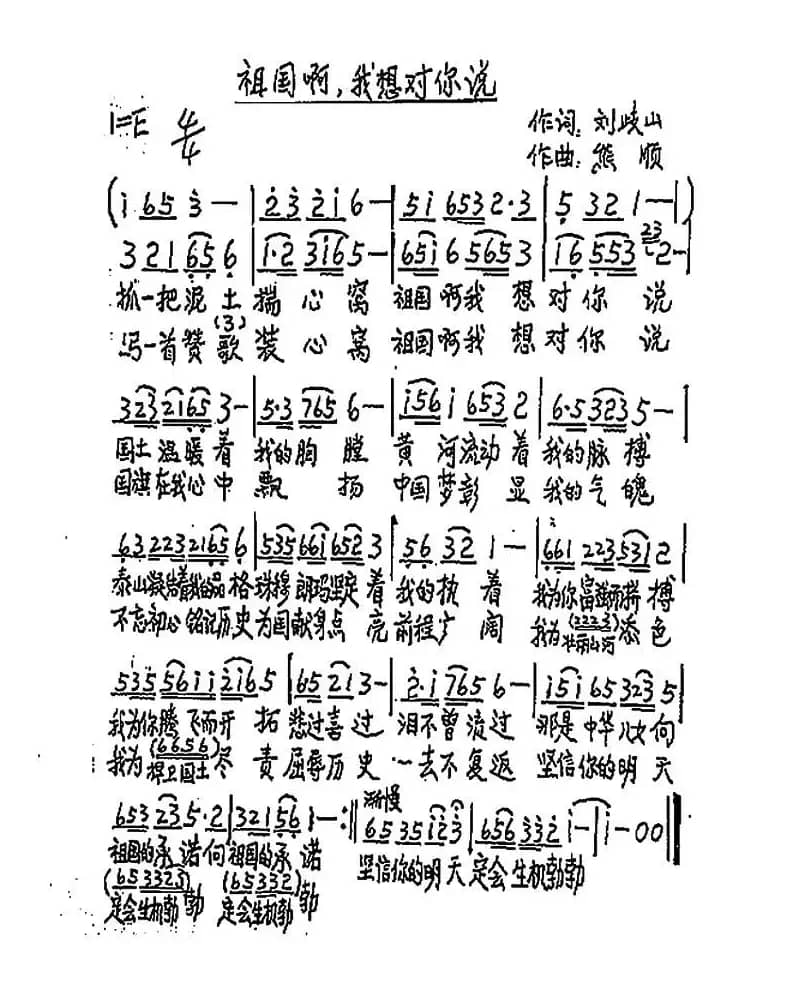 祖国啊,我想对你说
1=E 4/4
作词:刘岐山
作曲:熊 顺
(i 65 3 — | 23 21 6 — | 5i 653 2·3 | 5 32 1 — |)
3 21 65 6 | 1·2 3i65 — | 65i 6 5653 | 16 553 2 — |
抓一把泥土揣心窝 祖国啊我想对你说
写一首赞歌装心窝 祖国啊我想对你说
323 2165 3 — | 5·3 765 6 — | i56 i 653 2 | 6·5 323 5 — |
国土温暖着我的胸膛 黄河流动着我的脉搏
国旗在我心中飘扬 中国梦彰显我的气魄
63 223 2165 6 | 535 661 652 3 | 56 32 1 — | 661 223 531 2 |
泰山凝结着我的品格 珠穆朗玛坚定着我的执着 我为你富强而拼搏
不忘初心铭记历史 为国献身点亮前程广阔 我为(2223)壮丽山河添色
535 56ii 2i65 | 65 21 3 — | 2·i 765 6 — | i5i 65 323 5 |
我为你腾飞而开拓 悲过喜过 泪不曾流过 那是中华儿女向
我为(6656)捍卫国土尽责 屈辱历史 一去不复返 坚信你的明天
渐慢
653 23 5·2 | 321 56 1 — :‖ 65 35 i23 | 656 332 i — | i — 00 ‖
祖国的承诺向祖国的承诺 坚信你的明天定会生机勃勃
(653323) (65332)
定会生机勃勃 定会生机勃勃